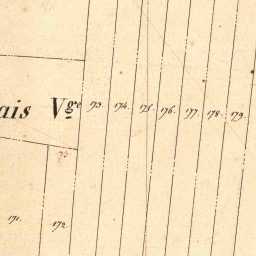 ais Vge 173. 174. 175. 176. 177. 178. 179.
171. 172.